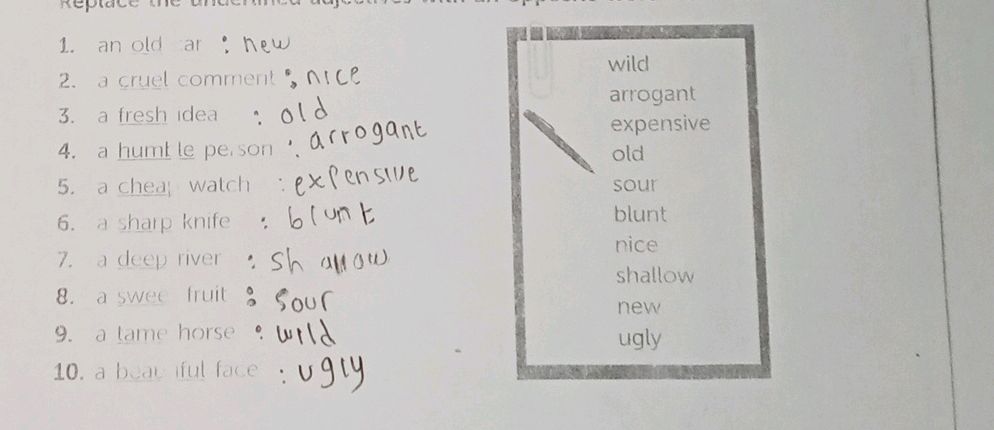 Replace the underlined adjectives with an opposite
1. an old ar : new
2. a cruel comment : nice
3. a fresh idea : old
4. a humble person : arrogant
5. a cheap watch : expensive
6. a sharp knife : blunt
7. a deep river : shallow
8. a sweet fruit : sour
9. a tame horse : wild
10. a beautiful face : ugly
wild
arrogant
expensive
old
sour
blunt
nice
shallow
new
ugly